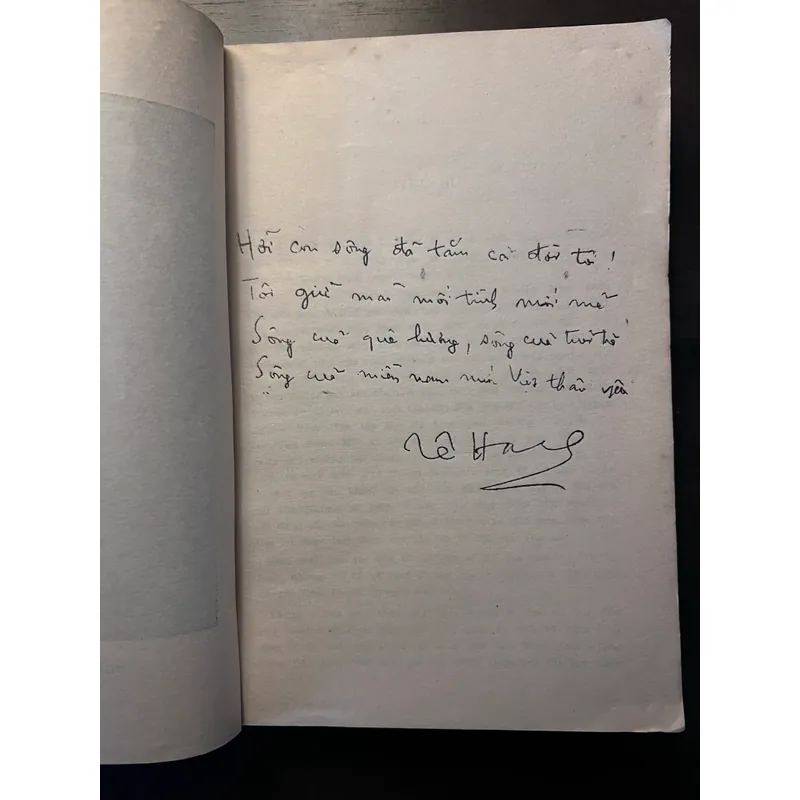 Hỡi con sông đã tắm cả đời tôi!
Tôi giữ mãi mối tình mới mẻ
Sông của quê hương, sông của tuổi trẻ
Sông của miền nam nước Việt thân yêu
Tế Hanh